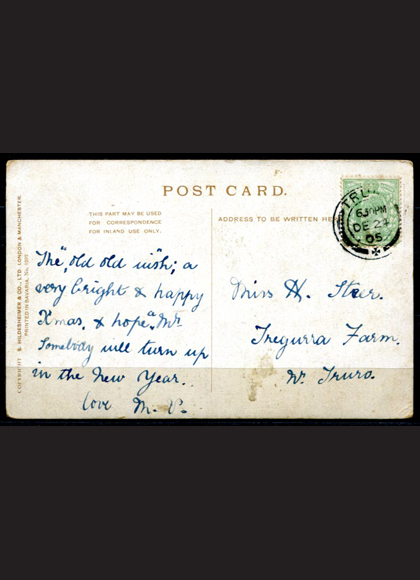 POST CARD.
THIS PART MAY BE USED
FOR CORRESPONDENCE
FOR INLAND USE ONLY.
ADDRESS TO BE WRITTEN HE
COPYRIGHT S. HILDESHEIMER & CO., LTD. LONDON & MANCHESTER
PRINTED IN BAVARIA. No.
TRU
6 30 PM
DE 24
05
The "old old wish; a
very bright & happy
Xmas, & hope "Mr
Somebody will turn up
in the New Year.
love M. P.
Miss H. Steer.
Tregurra Farm.
Nr. Truro.